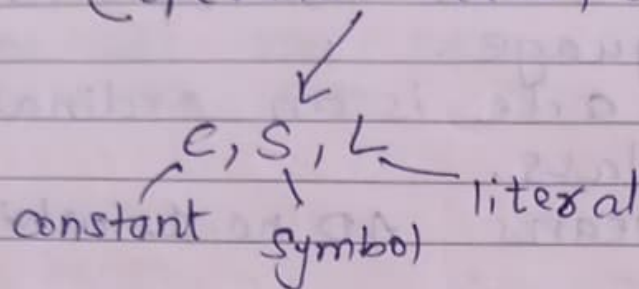 C, S, L
constant symbol literal